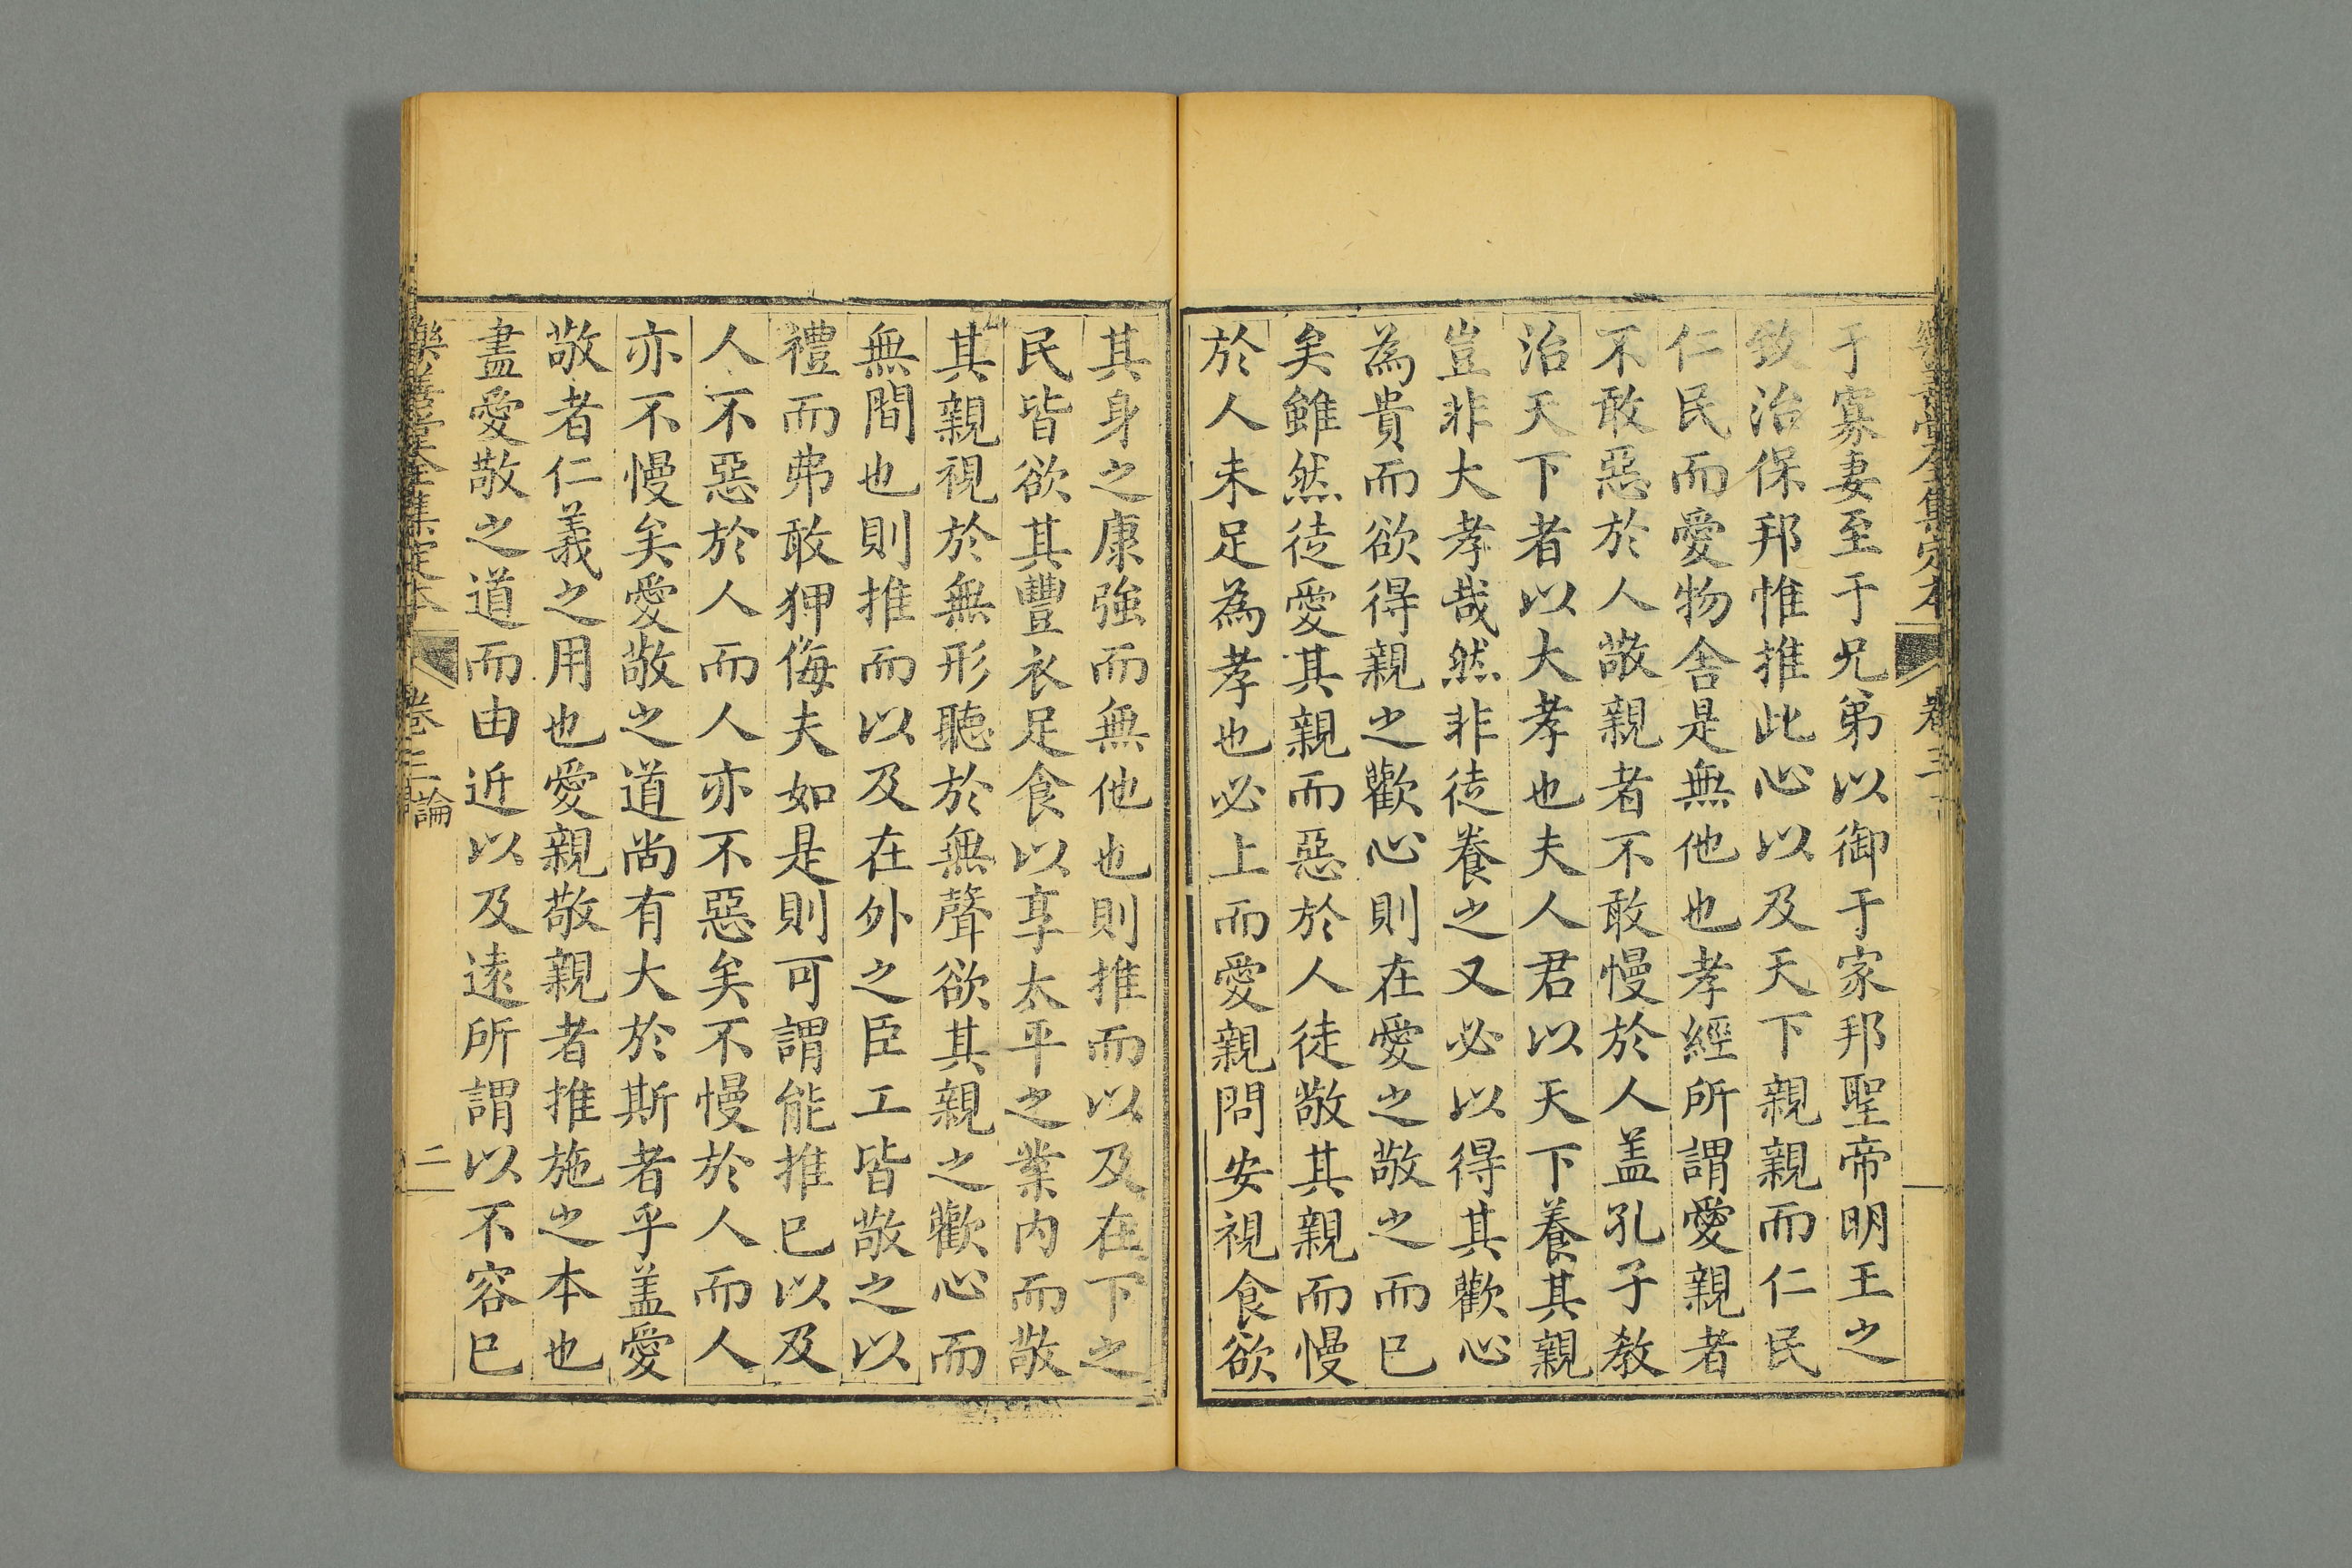 樂善堂全集定本 卷三
于寡妻至于兄弟以御于家邦聖帝明王之
致治保邦惟推此心以及天下親親而仁民
仁民而愛物舍是無他也孝經所謂愛親者
不敢惡於人敬親者不敢慢於人盖孔子教
治天下者以大孝也夫人君以天下養其親
豈非大孝哉然非徒養之又必以得其歡心
為貴而欲得親之歡心則在愛之敬之而已
矣雖然徒愛其親而惡於人徒敬其親而慢
於人未足為孝也必上而愛親問安視食欲
其身之康強而無他也則推而以及在下之
民皆欲其豐衣足食以享太平之業内而敬
其親視於無形聽於無聲欲其親之歡心而
無間也則推而以及在外之臣工皆敬之以
禮而弗敢狎侮夫如是則可謂能推已以及
人不惡於人而人亦不惡矣不慢於人而人
亦不慢矣愛敬之道尚有大於斯者乎盖愛
敬者仁義之用也愛親敬親者推施之本也
盡愛敬之道而由近以及遠所謂以不容已
樂善堂全集定本 卷三 論 二